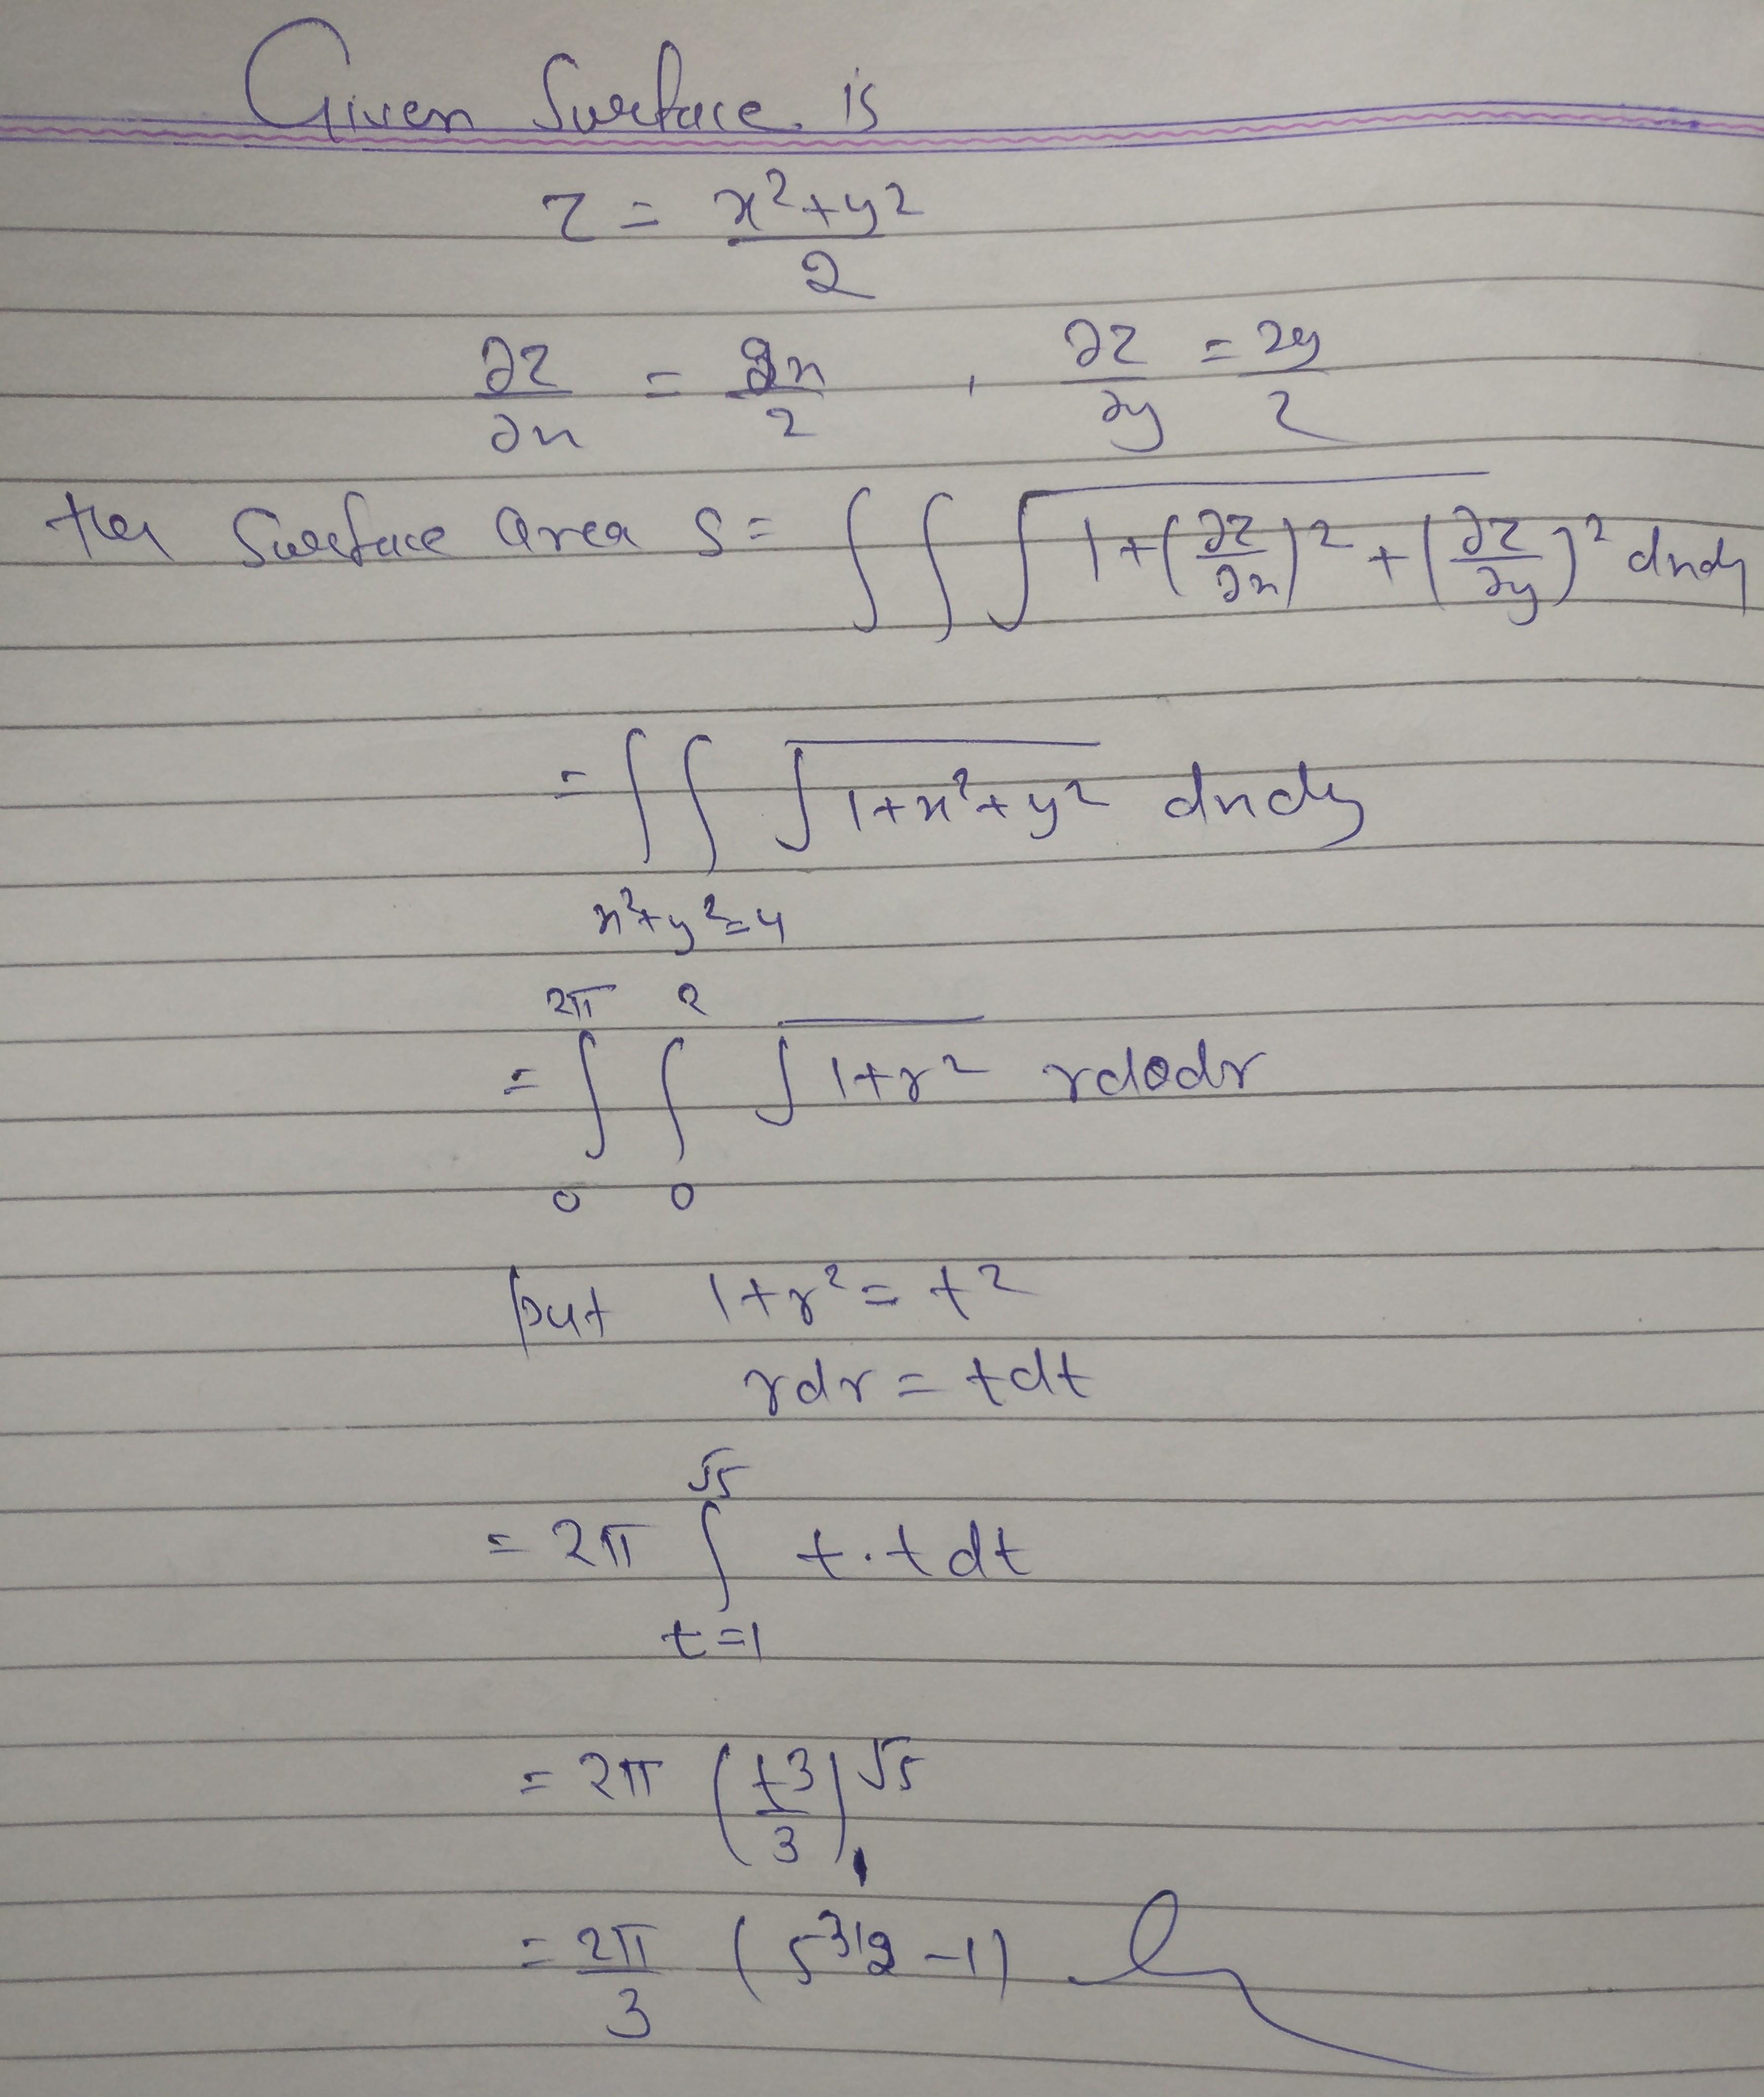 Given Surface is
z = x²+y²/2
∂z/∂x = 2x/2 , ∂z/∂y = 2y/2
the Surface area S = ∫∫√1+(∂z/∂x)²+(∂z/∂y)² dxdy
= ∫∫ √1+x²+y² dxdy
x²+y²=4
2π 2
= ∫ ∫ √1+r² rdθdr
0 0
put 1+r² = t²
rdr = tdt
√5
= 2π ∫ t.t dt
t=1
= 2π (t3/3)₁^√5
= 2π/3 (5^3/2 -1)